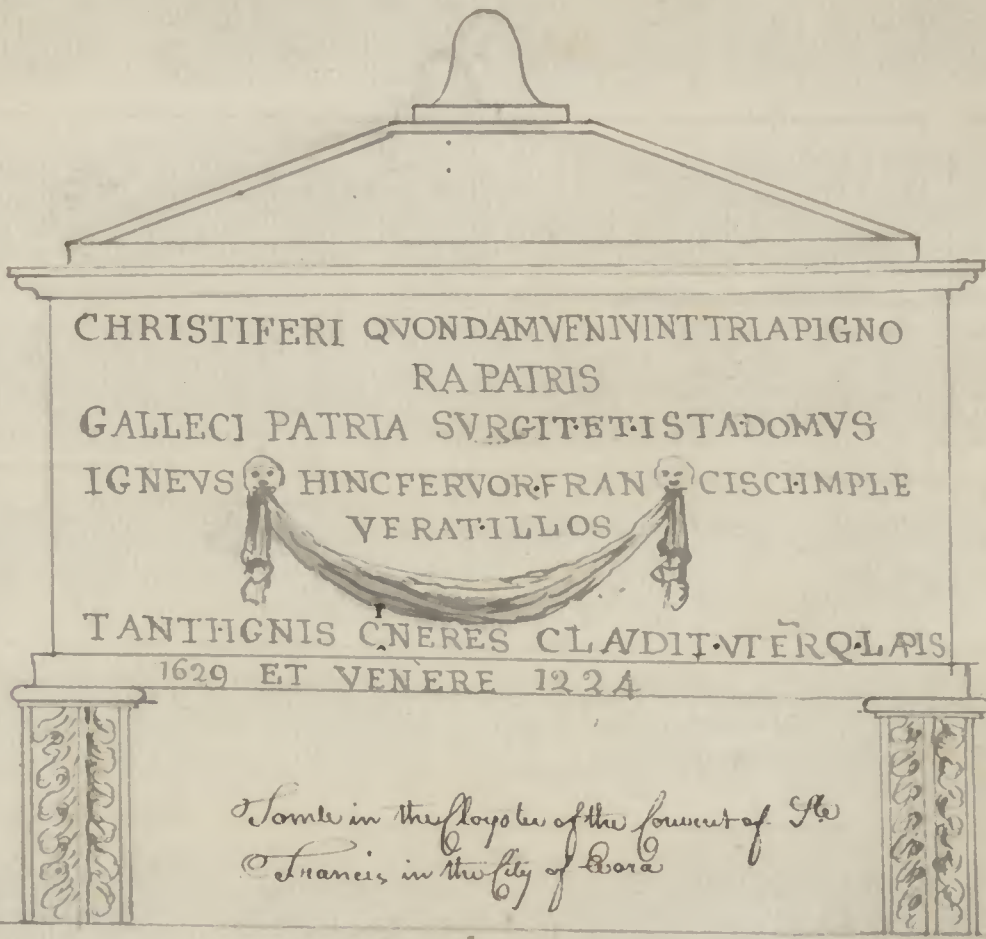 CHRISTIFERI QVONDAMVENIVINT TRIAPIGNO
RA PATRIS
GALLECI PATRIA SVRGIT·ET·ISTA·DOMVS
IGNEVS HINC FERVOR·FRAN CISCI·IMPLE
VERAT·ILLOS
TANTI·IGNIS CINERES CLAVDIT·VTERQ·LAPIS
1629 ET VENERE 1224
Tomb in the Cloyster of the Convent of Ste
Francis in the City of Evora